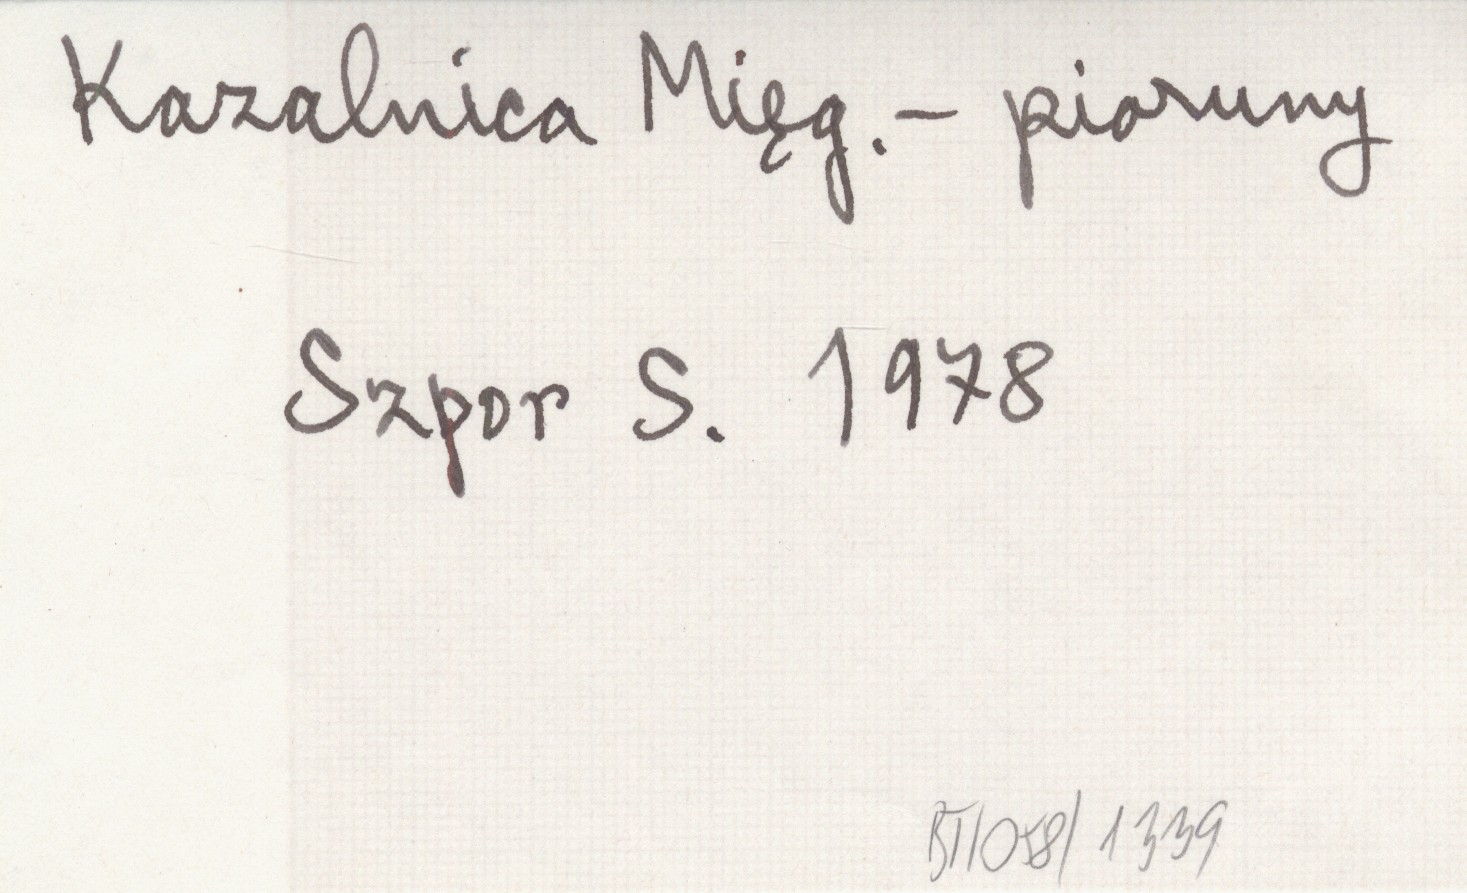 Kazalnica Mięg. – pioruny
Szpor S. 1978
BT/058/1339